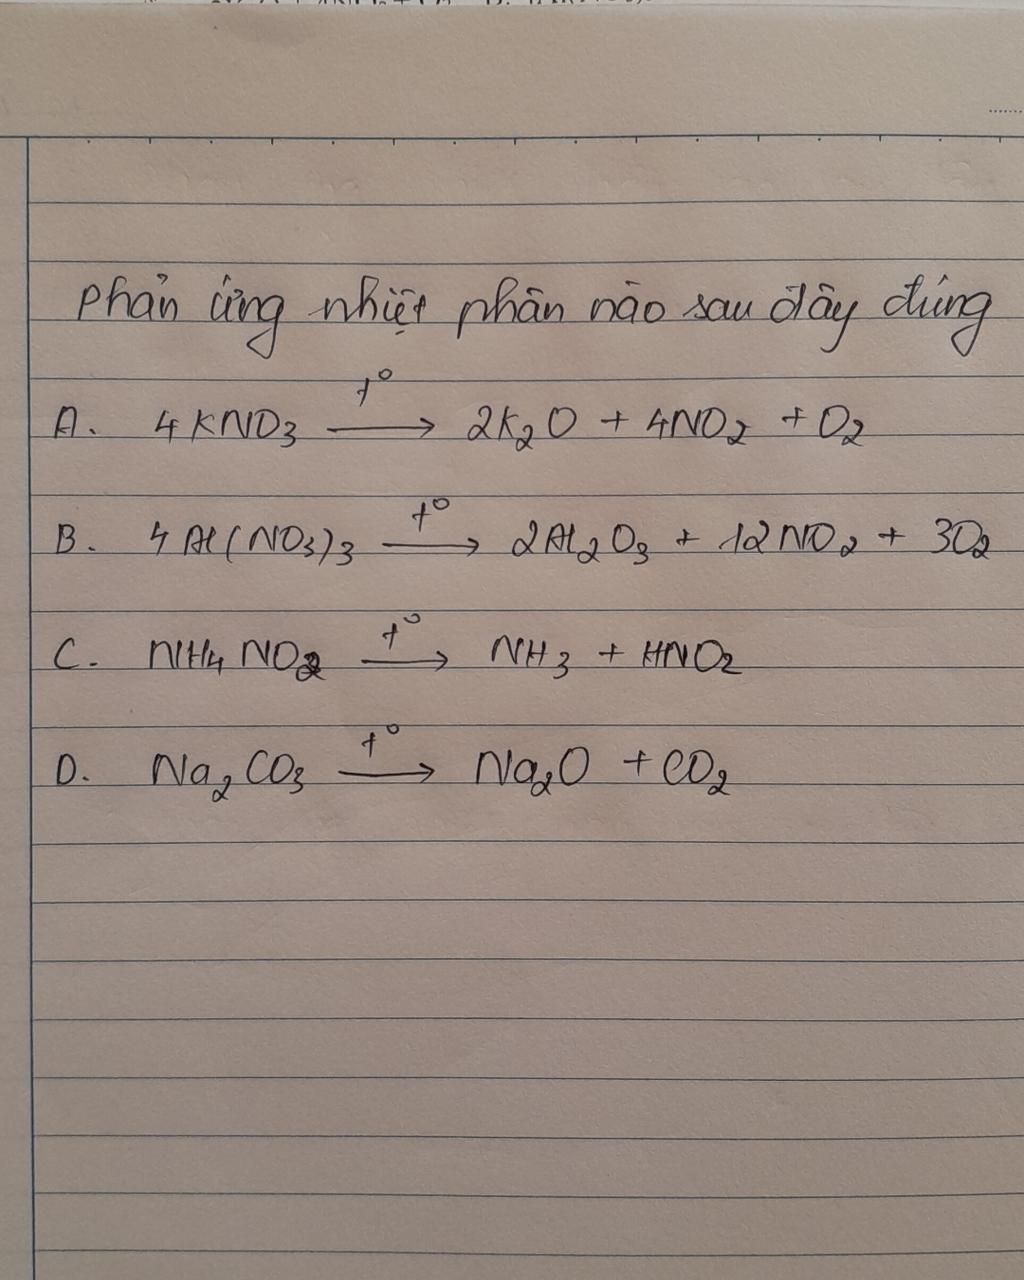 phản ứng nhiệt phân nào sau đây đúng
A. 4KNO₃ →t⁰ 2K₂O + 4NO₂ + O₂
B. 4Al(NO₃)₃ →t⁰ 2Al₂O₃ + 12NO₂ + 3O₂
C. NH₄NO₂ →t⁰ NH₃ + HNO₂
D. Na₂CO₃ →t⁰ Na₂O + CO₂